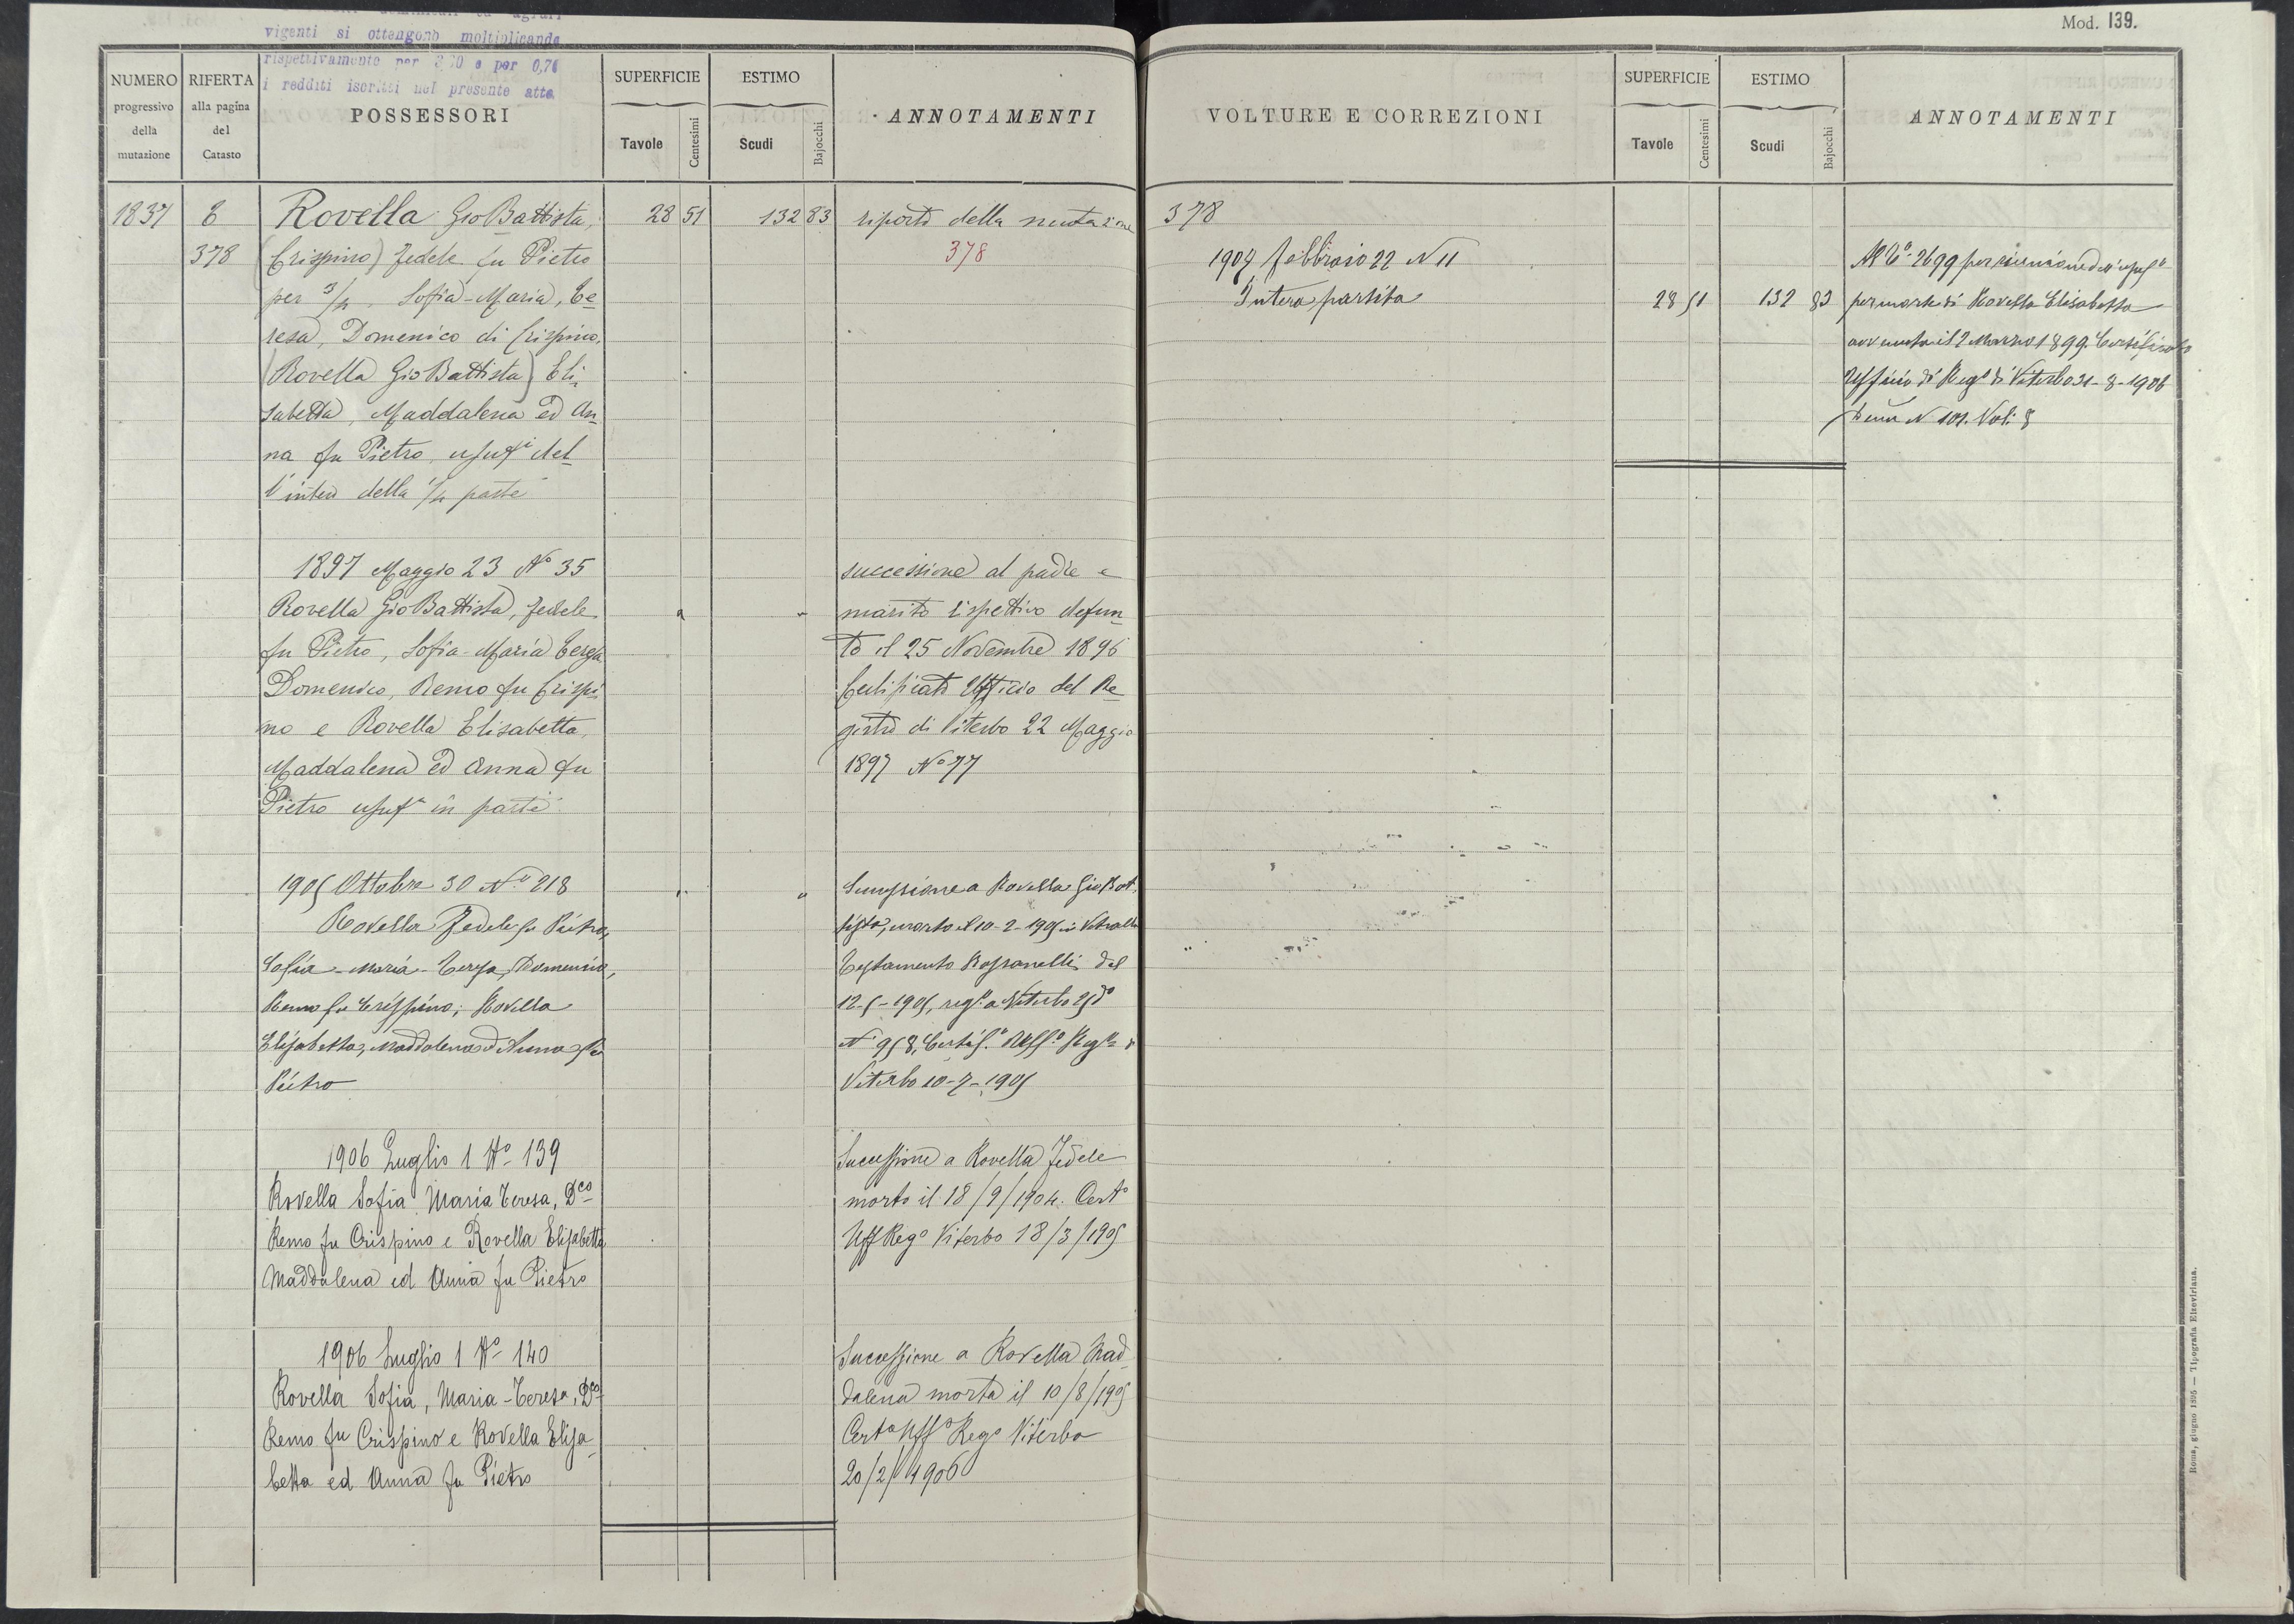 Mod. 139.
vigenti si ottengono moltiplicando
rispettivamente per e per 0,76
i redditi iscritti nel presente atto
NUMERO progressivo della mutazione
RIFERTA alla pagina del Catasto
POSSESSORI
SUPERFICIE
Tavole Centesimi
ESTIMO
Scudi Bajocchi
ANNOTAMENTI
1837 378
Rovella Gio Battista, 28 51 132 83 riporto della mutazione
(Crispino) Fedele fu Pietro 378
per 3/4. Sofia-Maria, Te
resa, Domenico di Crispino,
(Rovella Gio Battista) Eli
sabetta, Maddalena ed An
na fu Pietro, usufi del
l'intero della 1/4 parte
1897 Maggio 23 No 35
Rovella Gio Battista, Fedele
fu Pietro, Sofia-Maria Teresa
Domenico, Remo fu Crispi
no e Rovella Elisabetta,
Maddalena ed Anna fu
Pietro usuf in parte
successione al padre e
marito rispettivo defun
to il 25 Novembre 1896
Certificato Ufficio del Re
gistro di Viterbo 22 Maggio
1897 No 77
1905 Ottobre 30 No 218
Rovella Fedele fu Pietro,
Sofia-Maria-Teresa, Domenico,
Remo fu Crispino; Rovella
Elisabetta, Maddalena ed Anna fu
Pietro
Successione a Rovella Gio Bat
tista, morto il 10-2-1905 in Vetralla
Testamento del
12-5-1905, rego a Viterbo
No 958, Certifo Uffo Rego di
Viterbo 10-7-1905
1906 Luglio 1 No 139
Rovella Sofia Maria Teresa, Dco
Remo fu Crispino e Rovella Elisabetta
Maddalena ed Anna fu Pietro
Successione a Rovella Fedele
morto il 18/9/1904. Certo
Uff Rego Viterbo 18/3/1905
1906 Luglio 1 No 140
Rovella Sofia, Maria-Teresa, Dco
Remo fu Crispino e Rovella Elisa
betta ed Anna fu Pietro
Successione a Rovella Mad
dalena morta il 10/8/1905
Certo Uffo Rego Viterbo
20/2/1906
VOLTURE E CORREZIONI
SUPERFICIE
Tavole Centesimi
ESTIMO
Scudi Bajocchi
ANNOTAMENTI
378
1907 febbraio 22 N 11
Intera partita 28 51 132 83
2699 per riunione dell'usufo
per morte di Rovella Elisabetta
avvenuta il 2 Marzo 1899. Certificato
Ufficio di Rego di Viterbo 31-8-1906
Den N 101. Vol. 8
Roma, giugno 1895 — Tipografia Elzeviriana.